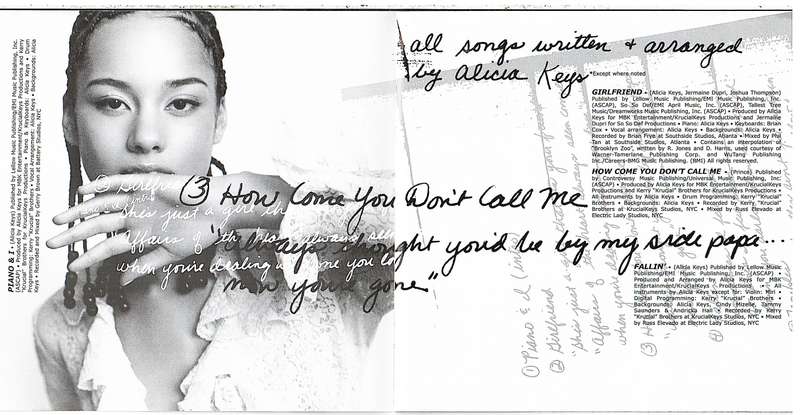 PIANO & I • (Alicia Keys) Published by Lellow Music Publishing/EMI Music Publishing, Inc.
(ASCAP) • Produced by Alicia Keys for MBK Entertainment/KrucialKeys Productions and Kerry
"Krucial" Brothers for KrucialKeys Productions • Piano & Keyboards: Alicia Keys • Drum
Programming: Kerry "Krucial" Brothers • Vocal Arrangement: Alicia Keys • Backgrounds: Alicia
Keys • Recorded and Mixed by Gerry Brown at Battery Studios, NYC
all songs written + arranged
by Alicia Keys
*Except where noted
GIRLFRIEND • (Alicia Keys, Jermaine Dupri, Joshua Thompson)
Published by Lellow Music Publishing/EMI Music Publishing, Inc.
(ASCAP), So So Def/EMI April Music, Inc. (ASCAP), Tallest Tree
Music/Dreamworks Music Publishing (ASCAP) • Produced by Alicia
Keys for MBK Entertainment/KrucialKeys Productions and Jermaine
Dupri for So So Def Productions • Piano: Alicia Keys • Keyboards: Brian
Cox • Vocal arrangement: Alicia Keys • Backgrounds: Alicia Keys •
Recorded by Brian Frye at Southside Studios, Atlanta • Mixed by Phil
Tan at Southside Studios, Atlanta • Contains an interpolation of
"Brooklyn Zoo", written by R. Jones and D. Harris, used courtesy of
Warner-Tamerlane Publishing Corp. and WuTang Publishing
Inc./Careers-BMG Music Publishing. (BMI) All rights reserved.
HOW COME YOU DON'T CALL ME • (Prince) Published
by Controversy Music Publishing/Universal Music Publishing, Inc.
(ASCAP) • Produced by Alicia Keys for MBK Entertainment/KrucialKeys
Productions and Kerry "Krucial" Brothers for KrucialKeys Productions •
All instruments by Alicia Keys • Drum Programming: Kerry "Krucial"
Brothers • Backgrounds: Alicia Keys • Recorded by Kerry "Krucial"
Brothers at KrucialKeys Studios, NYC • Mixed by Russ Elevado at
Electric Lady Studios, NYC
③ How Come You Don't Call Me
"I always thought you'd be by my side papa...
now you're gone"
FALLIN' • (Alicia Keys) Published by Lellow Music
Publishing/EMI Music Publishing, Inc. (ASCAP) •
Produced by Alicia Keys for MBK
Entertainment/KrucialKeys Productions • All
instruments by Alicia Keys except for: Violin: Miri •
Digital Programming: Kerry "Krucial" Brothers •
Backgrounds: Alicia Keys, Cindy Mizelle, Tammy
Saunders & Andricka Hall • Recorded by Kerry
"Krucial" Brothers at KrucialKeys Studios, NYC • Mixed
by Russ Elevado at Electric Lady Studios, NYC
② Girlfriend
She's just a girl
when you're dealing
① Piano & I
② Girlfriend
"She's just
"Affairs of
when you
③ H